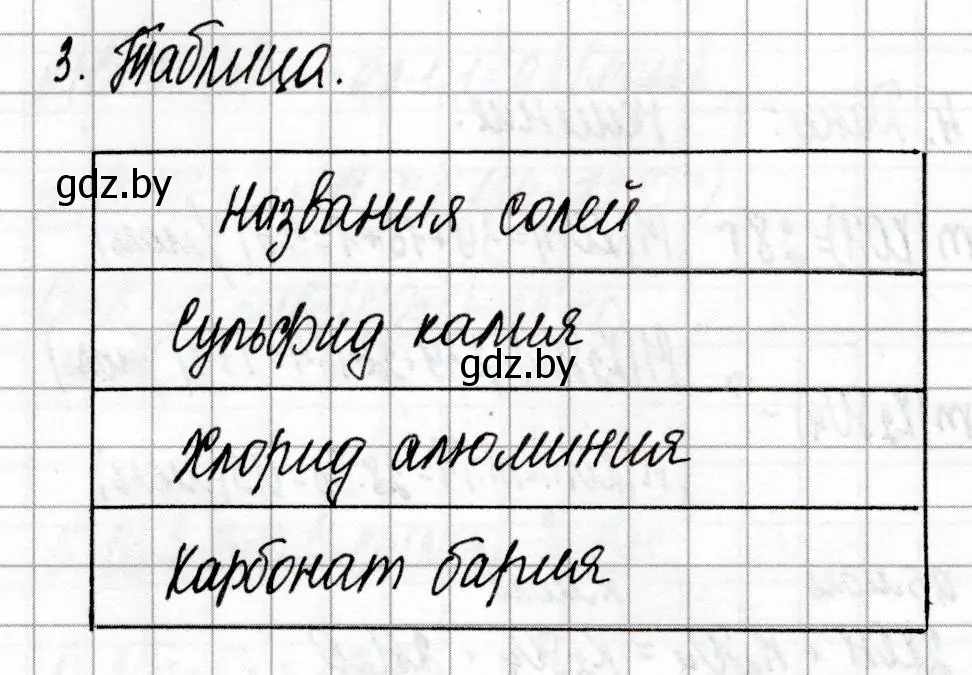 3. Таблица.
gdz.by
Названия солей
Сульфид калия
gdz.by
Хлорид алюминия
Карбонат бария